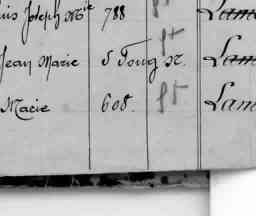 uis Joseph Mie 788 Lam
Jean Marie S Tong N. Lam
Marie 608. Lam